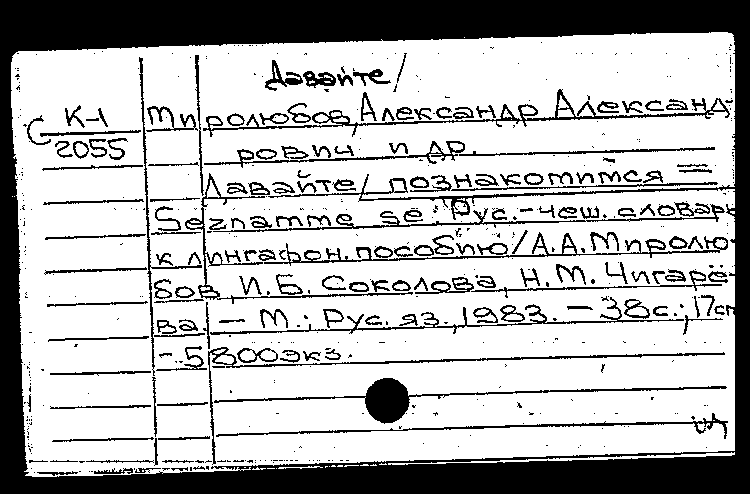 Давайте/
С К-1 Миролюбов, Александр Александ-
2055 рович и др.
Давайте/ познакомимся =
Seznamme se: Рус.-чеш. словарь
к лингафон. пособию/А.А.Миролю-
бов, И.Б. Соколова, Н.М. Чигарё-
ва. – М.: Рус. яз., 1983. – 38с.; 17см
- 5800экз.